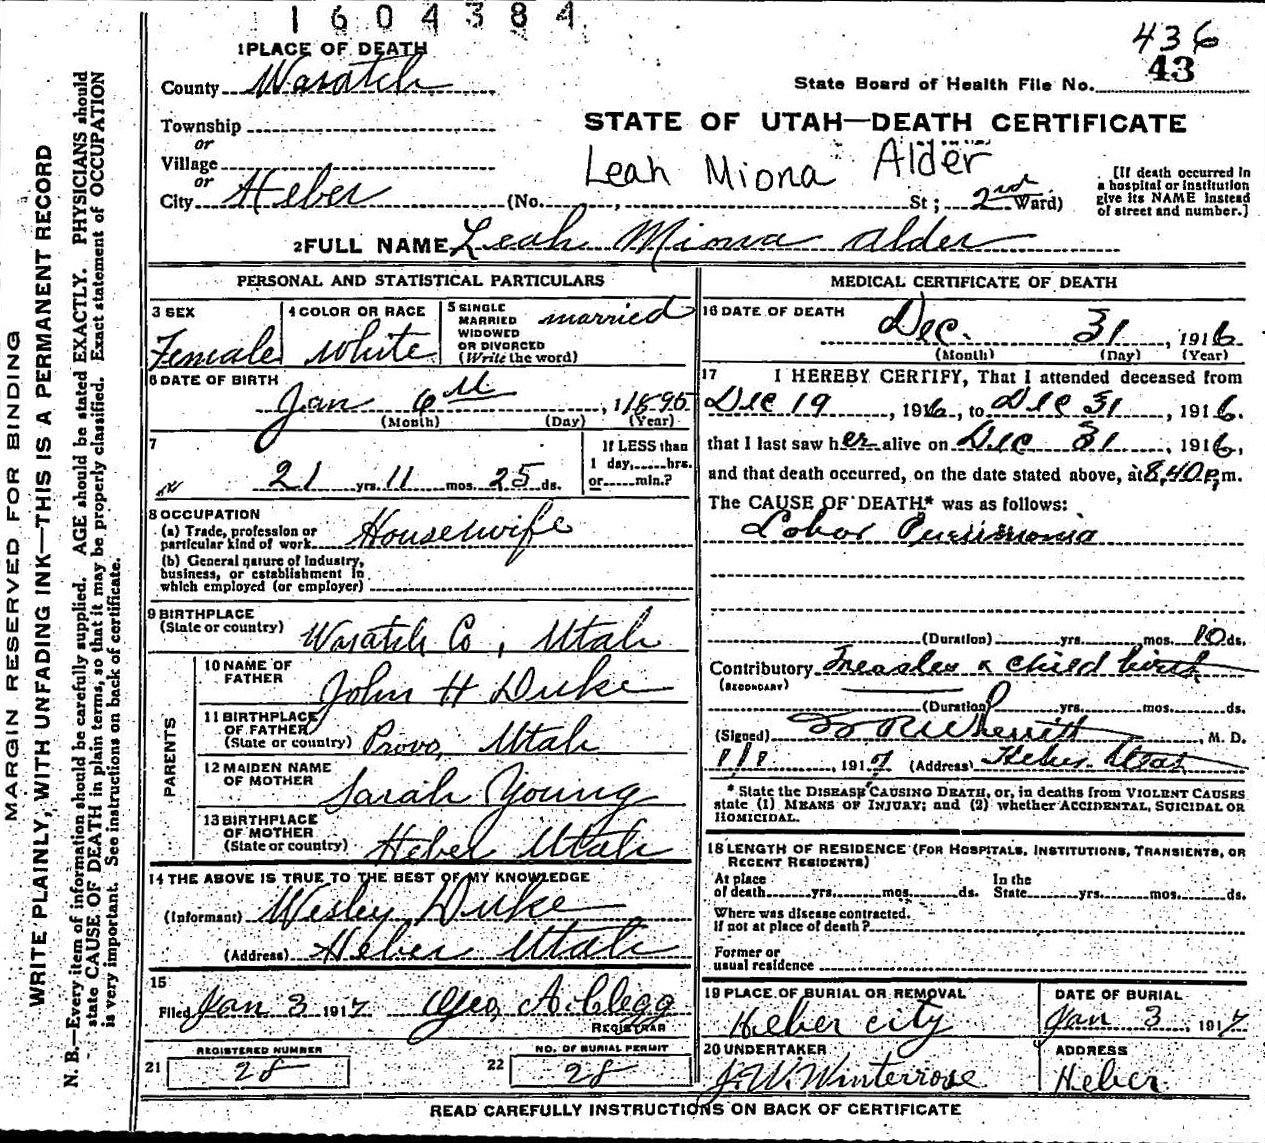 1604384
436
43
1 PLACE OF DEATH
County Wasatch
State Board of Health File No.
Township
or
STATE OF UTAH—DEATH CERTIFICATE
Village
or
Leah Miona Alder
City Heber (No. , St; 2nd Ward)
[If death occurred in
a hospital or institution
give its NAME instead
of street and number.]
2 FULL NAME Leah Miona Alder
PERSONAL AND STATISTICAL PARTICULARS
3 SEX
Female
4 COLOR OR RACE
White
5 SINGLE
MARRIED
WIDOWED
OR DIVORCED
(Write the word)
married
6 DATE OF BIRTH
Jan 6th , 1895
(Month) (Day) (Year)
7
21 yrs. 11 mos. 25 ds.
If LESS than
1 day, hrs.
or min.?
8 OCCUPATION
(a) Trade, profession or
particular kind of work Housewife
(b) General nature of Industry,
business, or establishment in
which employed (or employer)
9 BIRTHPLACE
(State or country) Wasatch Co, Utah
PARENTS
10 NAME OF
FATHER John H Duke
11 BIRTHPLACE
OF FATHER
(State or country) Provo, Utah
12 MAIDEN NAME
OF MOTHER Sarah Young
13 BIRTHPLACE
OF MOTHER
(State or country) Heber Utah
14 THE ABOVE IS TRUE TO THE BEST OF MY KNOWLEDGE
(Informant) Wesley Duke
(Address) Heber Utah
15
Filed Jan 3 1917 Geo, A. Clegg
REGISTRAR
21 REGISTERED NUMBER
28
22 NO. OF BURIAL PERMIT
28
MEDICAL CERTIFICATE OF DEATH
16 DATE OF DEATH
Dec. 31 , 1916
(Month) (Day) (Year)
17 I HEREBY CERTIFY, That I attended deceased from
Dec 19 , 1916, to Dec 31 , 1916.
that I last saw her alive on Dec 31 , 1916,
and that death occurred, on the date stated above, at 8,40 p, m.
The CAUSE OF DEATH* was as follows:
Lobar Pneumonia
(Duration) yrs. mos. 10 ds.
Contributory Measles & child birth
(SECONDARY)
(Duration) yrs. mos. ds.
(Signed) Wherritt , M. D.
1/1 , 1917 (Address) Heber Utah
* State the DISEASE CAUSING DEATH, or, in deaths from VIOLENT CAUSES
state (1) MEANS OF INJURY; and (2) whether ACCIDENTAL, SUICIDAL OR
HOMICIDAL.
18 LENGTH OF RESIDENCE (FOR HOSPITALS, INSTITUTIONS, TRANSIENTS, OR
RECENT RESIDENTS)
At place In the
of death yrs. mos. ds. State yrs. mos. ds.
Where was disease contracted.
If not at place of death?
Former or
usual residence
19 PLACE OF BURIAL OR REMOVAL
Heber city
DATE OF BURIAL
Jan 3 , 1917
20 UNDERTAKER
J. W. Winterrose
ADDRESS
Heber
READ CAREFULLY INSTRUCTIONS ON BACK OF CERTIFICATE
MARGIN RESERVED FOR BINDING
WRITE PLAINLY, WITH UNFADING INK—THIS IS A PERMANENT RECORD
N. B.—Every item of information should be carefully supplied. AGE should be stated EXACTLY. PHYSICIANS should
state CAUSE OF DEATH in plain terms, so that it may be properly classified. Exact statement of OCCUPATION
is very important. See instructions on back of certificate.